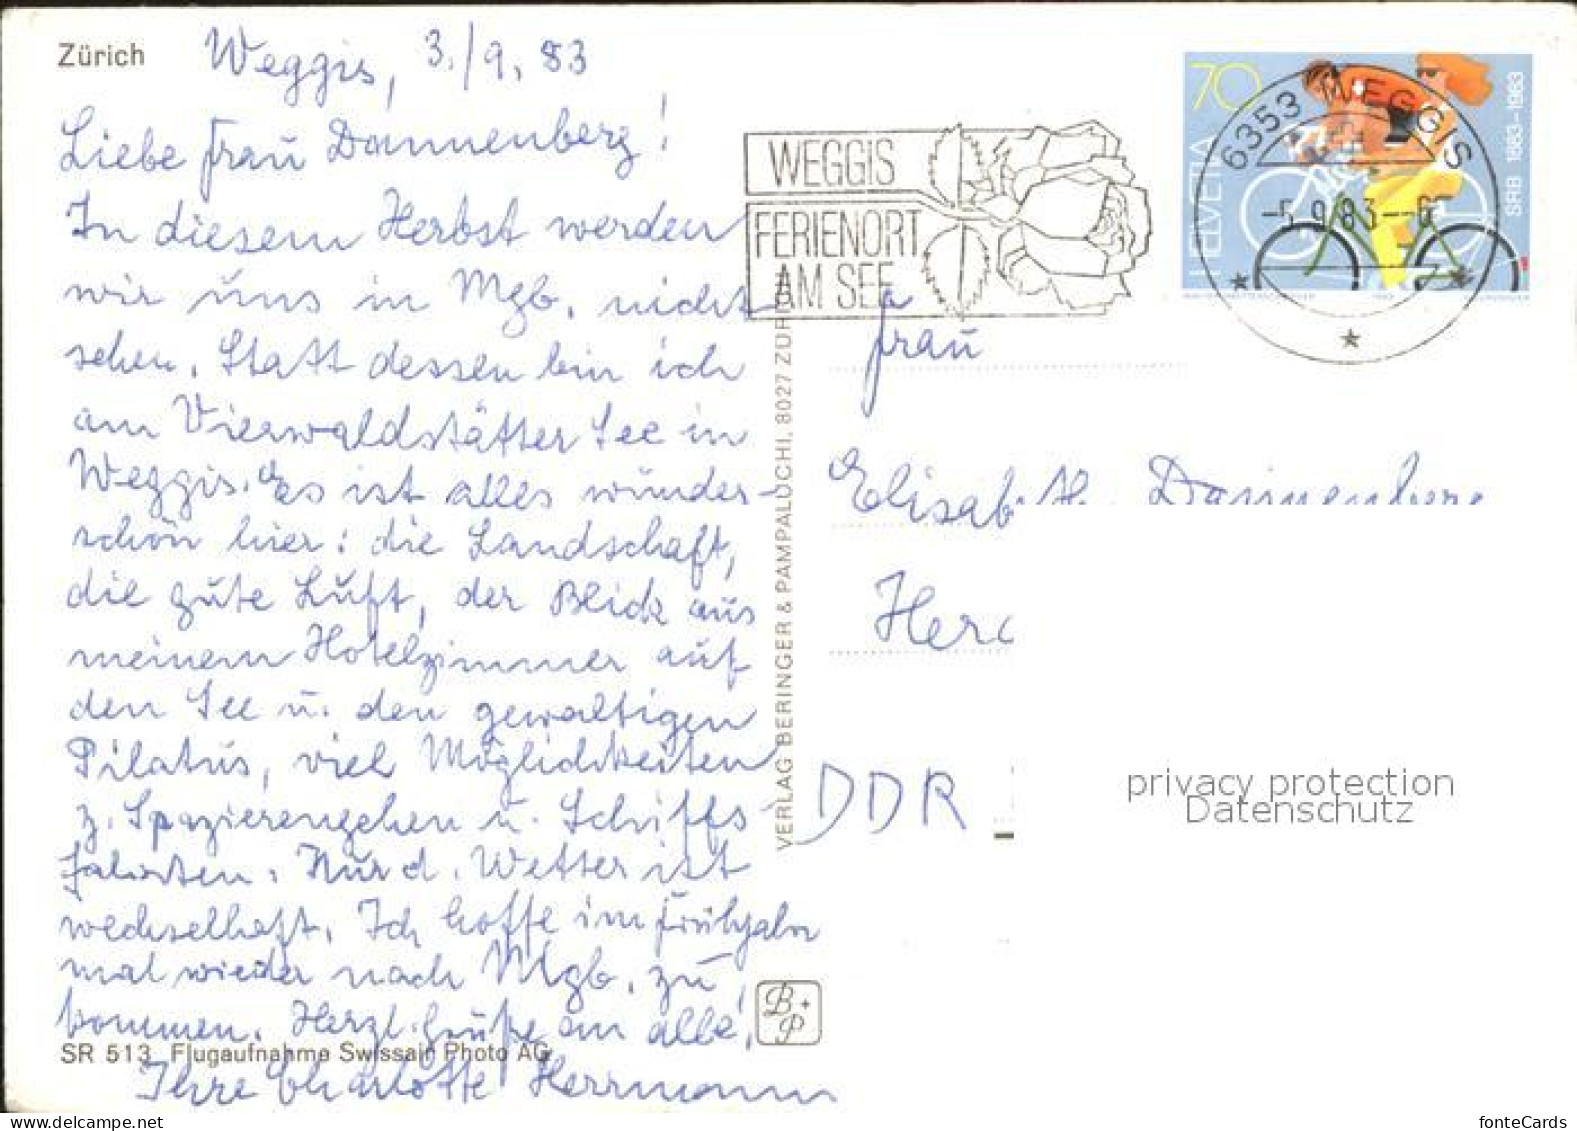 Zürich
Weggis, 3./9. 83
Liebe Frau Dannenberg!
In diesem Herbst werden
wir uns in Mgb. nicht
sehen. Statt dessen bin ich
am Vierwaldstätter See in
Weggis. Es ist alles wunder-
schön hier: die Landschaft,
die gute Luft, der Blick aus
meinem Hotelzimmer auf
den See u. den gewaltigen
Pilatus, viel Möglichkeiten
z. Spazierengehen u. Schiffs-
fahrten. Nur d. Wetter ist
wechselhaft. Ich hoffe im Frühjahr
mal wieder nach Mgb. zu
kommen. Herzl. Grüße an alle!
Ihre Charlotte Herrmann
SR 513 Flugaufnahme Swissair Photo AG
VERLAG BERINGER & PAMPALUCHI, 8027 ZÜRICH
B+P
WEGGIS
FERIENORT
AM SEE
6353 WEGGIS
-5.9.83--
70
HELVETIA
SRB 1883-1983
Frau
Elisabeth Dannenberg
Herd
DDR
privacy protection
Datenschutz
fonteCards